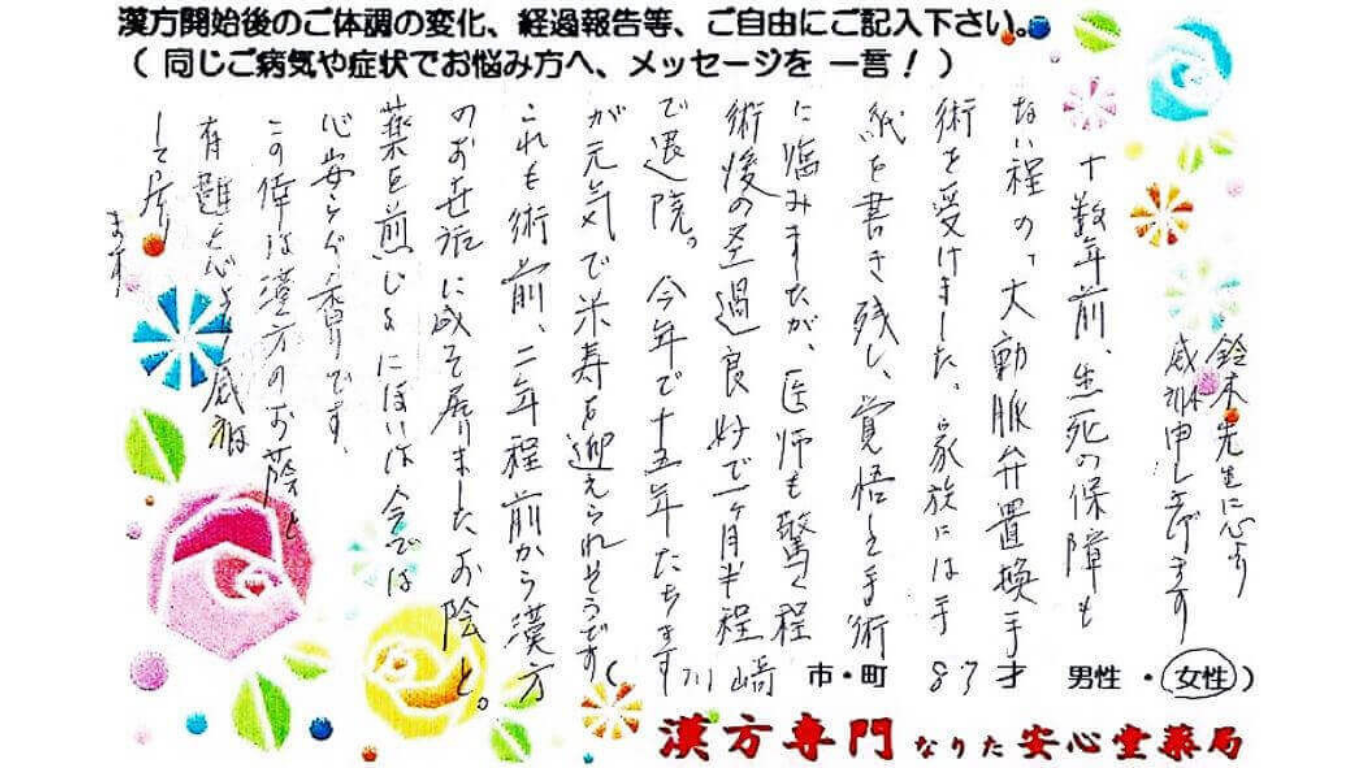 漢方開始後のご体調の変化、経過報告等、ご自由にご記入下さい。
（ 同じご病気や症状でお悩み方へ、メッセージを 一言！ ）
鈴木先生に心より
感謝申し上げます
十数年前、生死の保障も
ない程の「大動脈弁置換手
術を受けました。家族には手
紙を書き残し、覚悟と手術
に臨みましたが、医師も驚く程
術後の経過良好で一ヶ月半程
で退院。今年で十五年たちます
が元気で米寿を迎えられそうです
これも術前、二年程前から漢方
のお世話に成って居りましたお陰と。
薬を煎じるにほいは今では
心安らぐ香りです。
この倖は漢方のお蔭と
有難く心より感謝
して居り
ます
（ 川崎 市・町 87 才 男性 ・ 女性 ）
漢方専門 なりた 安心堂薬局